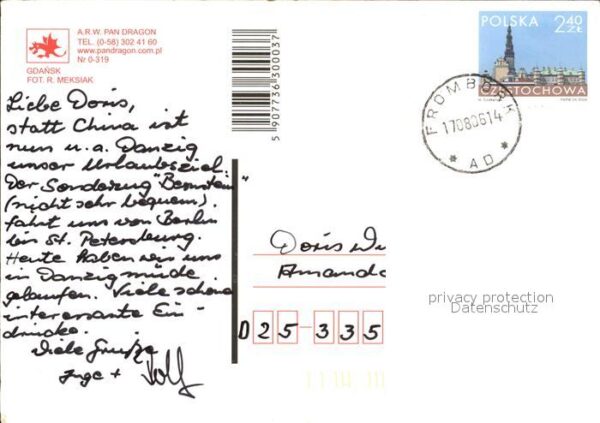 A.R.W. PAN DRAGON
TEL. (0-58) 302 41 60
www.pandragon.com.pl
Nr 0-319
GDAŃSK
FOT. R. MEKSIAK
5 907736 300037
POLSKA 2.40 ZŁ
CZĘSTOCHOWA
FROMBORK
170806 14
* AD *
Liebe Doris,
statt China ist
nun u. a. Danzig
unser Urlaubsziel.
Der Sonderzug "Bernstein"
(nicht sehr bequem).
fährt uns von Berlin
bis St. Petersburg.
Heute haben wir uns
in Danzig müde
gelaufen. Viele schöne
interessante Ein-
drücke.
Viele Grüße
Inge + Rolf
Doris
Amanda
D 25-335
privacy protection
Datenschutz